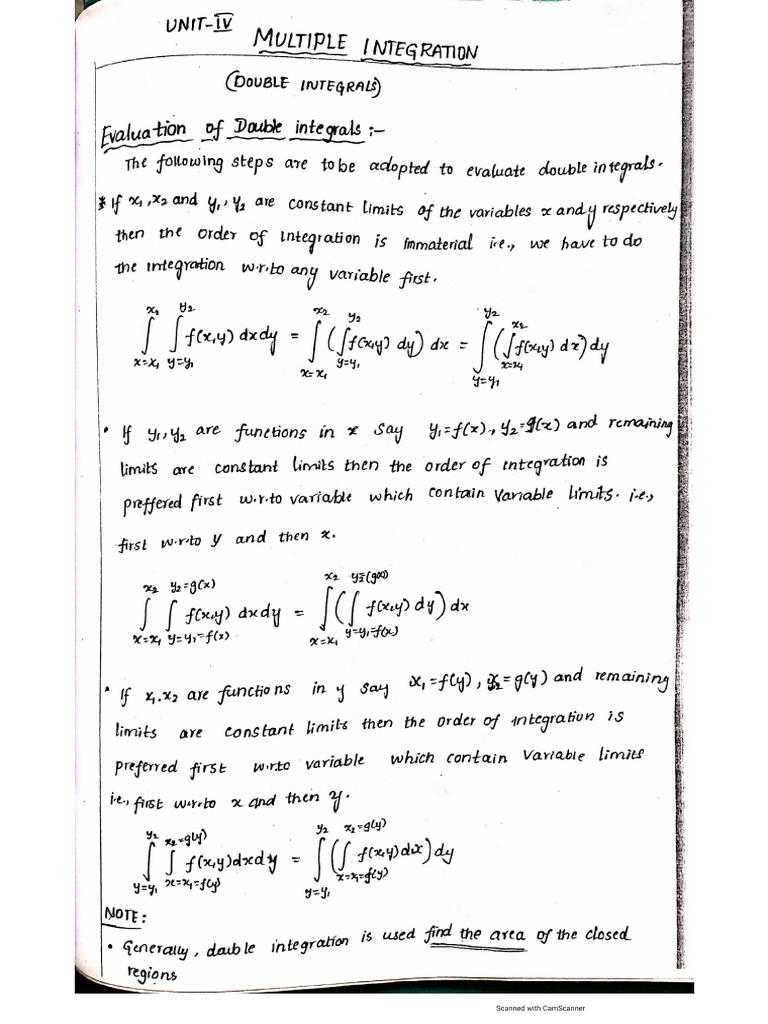 UNIT-IV
MULTIPLE INTEGRATION
(DOUBLE INTEGRALS)
Evaluation of Double integrals :-
The following steps are to be adopted to evaluate double integrals.
* If x₁,x₂ and y₁,y₂ are constant limits of the variables x and y respectively
then the order of Integration is immaterial i.e., we have to do
the integration w.r.to any variable first.
∫_{x=x₁}^{x₂} ∫_{y=y₁}^{y₂} f(x,y) dxdy = ∫_{x=x₁}^{x₂} (∫_{y=y₁}^{y₂} f(x,y) dy) dx = ∫_{y=y₁}^{y₂} (∫_{x=x₁}^{x₂} f(x,y) dx) dy
• If y₁,y₂ are functions in x say y₁=f(x), y₂=g(x) and remaining
limits are constant limits then the order of integration is
preffered first w.r.to variable which contain variable limits. i.e.,
first w.r.to y and then x.
∫_{x=x₁}^{x₂} ∫_{y=y₁=f(x)}^{y₂=g(x)} f(x,y) dxdy = ∫_{x=x₁}^{x₂} (∫_{y=y₁=f(x)}^{y₂=(g(x))} f(x,y) dy) dx
• If x₁.x₂ are functions in y say x₁=f(y), x₂=g(y) and remaining
limits are constant limits then the order of integration is
preferred first w.r.to variable which contain variable limits
i.e., first w.r.to x and then y.
∫_{y=y₁}^{y₂} ∫_{x=x₁=f(y)}^{x₂=g(y)} f(x,y)dxdy = ∫_{y=y₁}^{y₂} (∫_{x=x₁=f(y)}^{x₂=g(y)} f(x,y)dx) dy
NOTE:
• Generally, double integration is used find the area of the closed
regions
Scanned with CamScanner